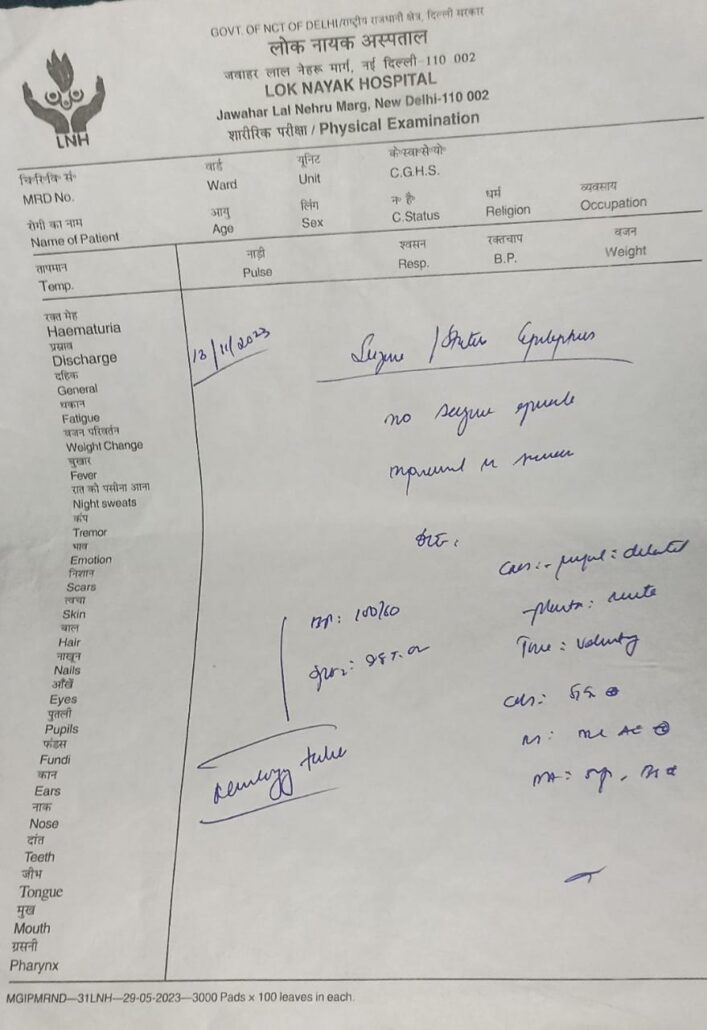 GOVT. OF NCT OF DELHI/राष्ट्रीय राजधानी क्षेत्र, दिल्ली सरकार
लोक नायक अस्पताल
जवाहर लाल नेहरू मार्ग, नई दिल्ली-110 002
LOK NAYAK HOSPITAL
Jawahar Lal Nehru Marg, New Delhi-110 002
शारीरिक परीक्षा / Physical Examination
LNH
चि.रि.वि सं वार्ड यूनिट के.स्वा.से.यो.
MRD No. Ward Unit C.G.H.S.
रोगी का नाम आयु लिंग न है धर्म व्यवसाय
Name of Patient Age Sex C.Status Religion Occupation
तापमान नाड़ी श्वसन रक्तचाप वजन
Temp. Pulse Resp. B.P. Weight
रक्त मेह
Haematuria
प्रस्राव
Discharge
दहिक
General
थकान
Fatigue
वजन परिवर्तन
Weight Change
बुखार
Fever
रात को पसीना आना
Night sweats
कंप
Tremor
भाव
Emotion
निशान
Scars
त्वचा
Skin
बाल
Hair
नाखून
Nails
आँखें
Eyes
पुतली
Pupils
फंडस
Fundi
कान
Ears
नाक
Nose
दांत
Teeth
जीभ
Tongue
मुख
Mouth
ग्रसनी
Pharynx
13/11/2023
Seizure / Status Epilepticus
no seizure episode
pupil: dilated
BP: 100/60
MGIPMRND—31LNH—29-05-2023—3000 Pads x 100 leaves in each.